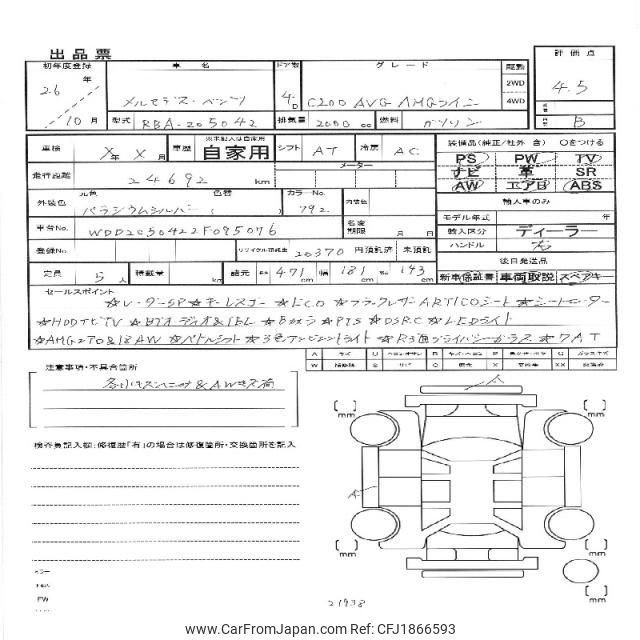 出品票
初年度登録 車名 ドア数 グレード 駆動 評価点
26年 10月
メルセデス・ベンツ 4D C200 AVG AMGライン 2WD 4WD 4.5
型式 RBA-205042 排気量 2000 cc 燃料 ガソリン B
車検 X年X月 車歴 ※未記入は自家用 自家用 シフト AT 冷房 AC
走行距離 24692 km メーター
外装色 元色 色替 カラーNo. 内装色
パラジウムシルバー ( ) 792
車台No. WDD2050422F095076 名変期限 月 日
登録No. リサイクル預託金 20370 円預託済 未預託
定員 5人 積載量 kg 諸元 長さ 471 cm 幅 181 cm 高さ 143 cm
装備品(純正/社外 含) ○をつける
PS PW TV
ナビ 革 SR
AW エアB ABS
輸入車のみ
モデル年式 年
輸入区分 ディーラー
ハンドル 右
後日発送品
新車保証書 車両取説 スペアキー
セールスポイント
☆レーダーSP ☆キーレスゴー ☆ECO ☆ブラックレザーARTICOシート ☆シートヒーター
☆HDDナビTV ☆BTオーディオ&TEL ☆Bカメラ ☆PTS ☆DSRC ☆LEDライト
☆AMGエアロ&18AW ☆パドルシフト ☆3色アンビエントライト ☆R3面プライバシーガラス ☆7AT
注意事項・不具合箇所
検査員記入欄:修復歴「有」の場合は修復箇所・交換箇所を記入
mm
mm
mm
mm
mm
21938
www.CarFromJapan.com Ref.ID: CFJ1866593